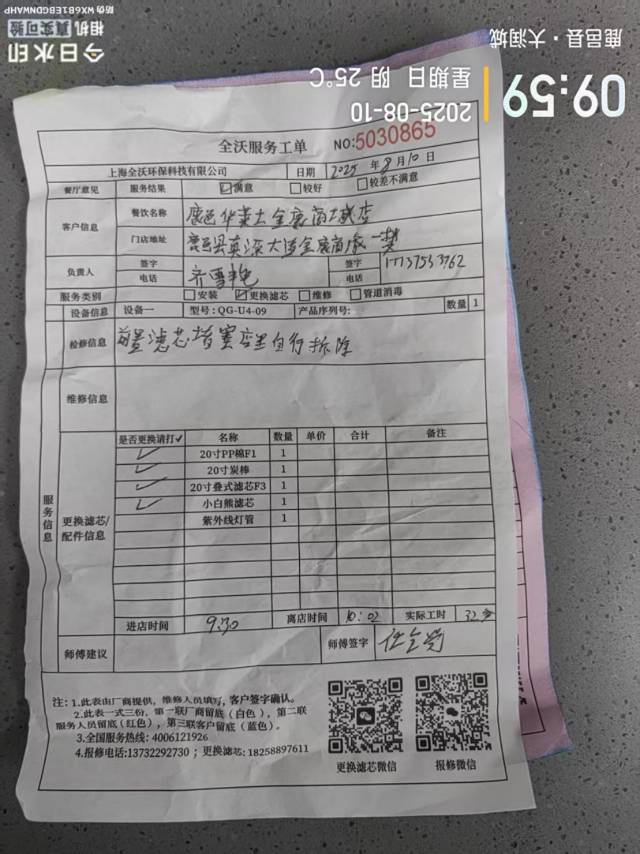 今日水印
相机
真实可验
防伪 WX6B1EBGDNWAHP
09:59
2025-08-10
星期日 阴 25℃
鹿邑县·大润城
全沃服务工单 NO:5030865
上海全沃环保科技有限公司 日期 2025 年 8 月 10 日
餐厅意见 服务结果 满意 较好 较差不满意
客户信息 餐饮名称 鹿邑华莱士金廊商城店
门店地址 鹿邑县真源大道金廊商城一楼
负责人 签字 签字
电话 电话
服务类别 安装 更换滤芯 维修 管道消毒
设备信息 设备一 型号:QG-U4-09 产品序列号: 数量 1
检修信息 前置滤芯堵塞店里自行拆除
维修信息
服务信息
更换滤芯/配件信息
是否更换请打✓ 名称 数量 单价 合计 备注
✓ 20寸PP棉F1 1
✓ 20寸炭棒 1
✓ 20寸叠式滤芯F3 1
✓ 小白熊滤芯 1
紫外线灯管 1
进店时间 9:30 离店时间 10:02 实际工时 32分
师傅建议 师傅签字
注:1.此表由厂商提供,维修人员填写,客户签字确认。
2.此表一式三份,第一联厂商留底(白色),第二联
服务人员留底(红色),第三联客户留底(蓝色)。
3.全国服务热线:4006121926
4.报修电话:13732292730;更换滤芯:18258897611
更换滤芯微信 报修微信